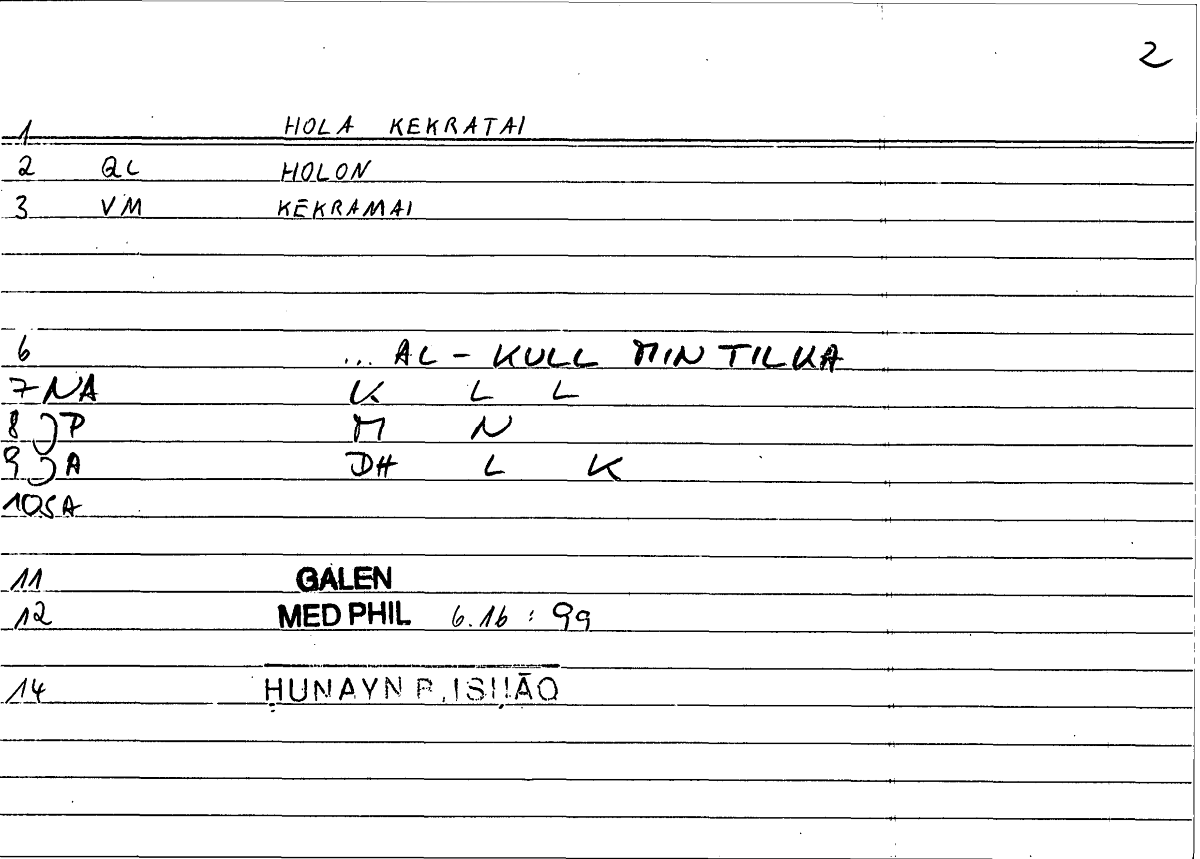 2
1 HOLA KEKRATAI
2 QL HOLON
3 VM KEKRAMAI
6 ... AL - KULL MIN TILKA
7 NA K L L
8 JP M N
9 JA DH L K
10 SA
11 GALEN
12 MED PHIL 6.16 : 99
14 ḤUNAYN B. ISḤĀQ